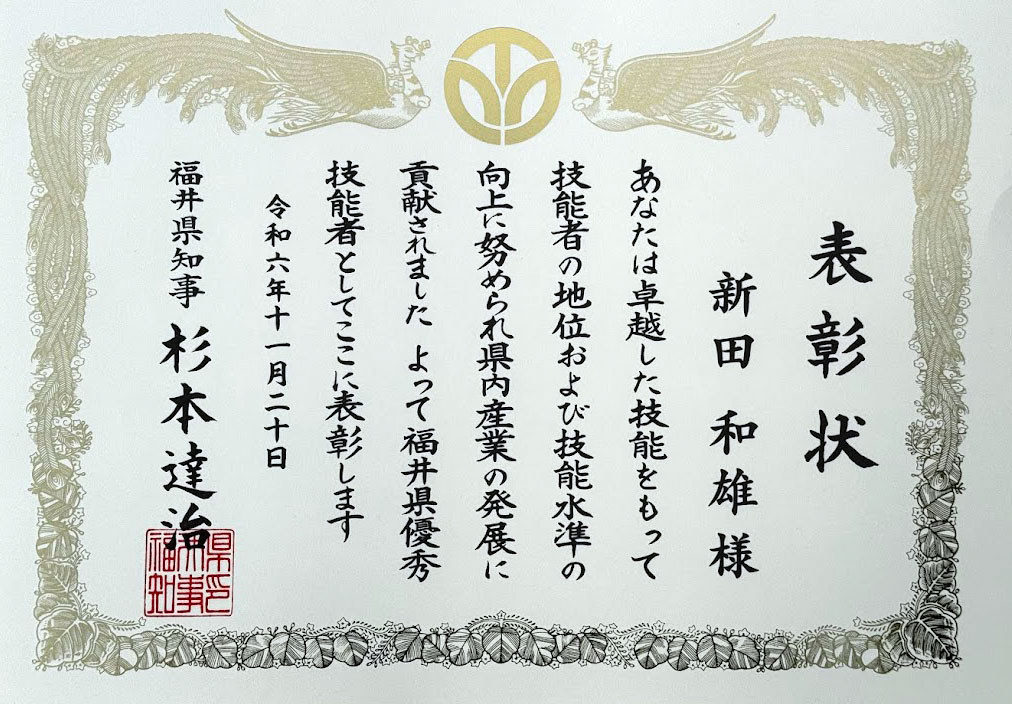 表彰状
新田 和雄 様
あなたは卓越した技能をもって
技能者の地位および技能水準の
向上に努められ県内産業の発展に
貢献されました よって福井県優秀
技能者としてここに表彰します
令和六年十一月二十日
福井県知事 杉本達治
県印
井事
福知